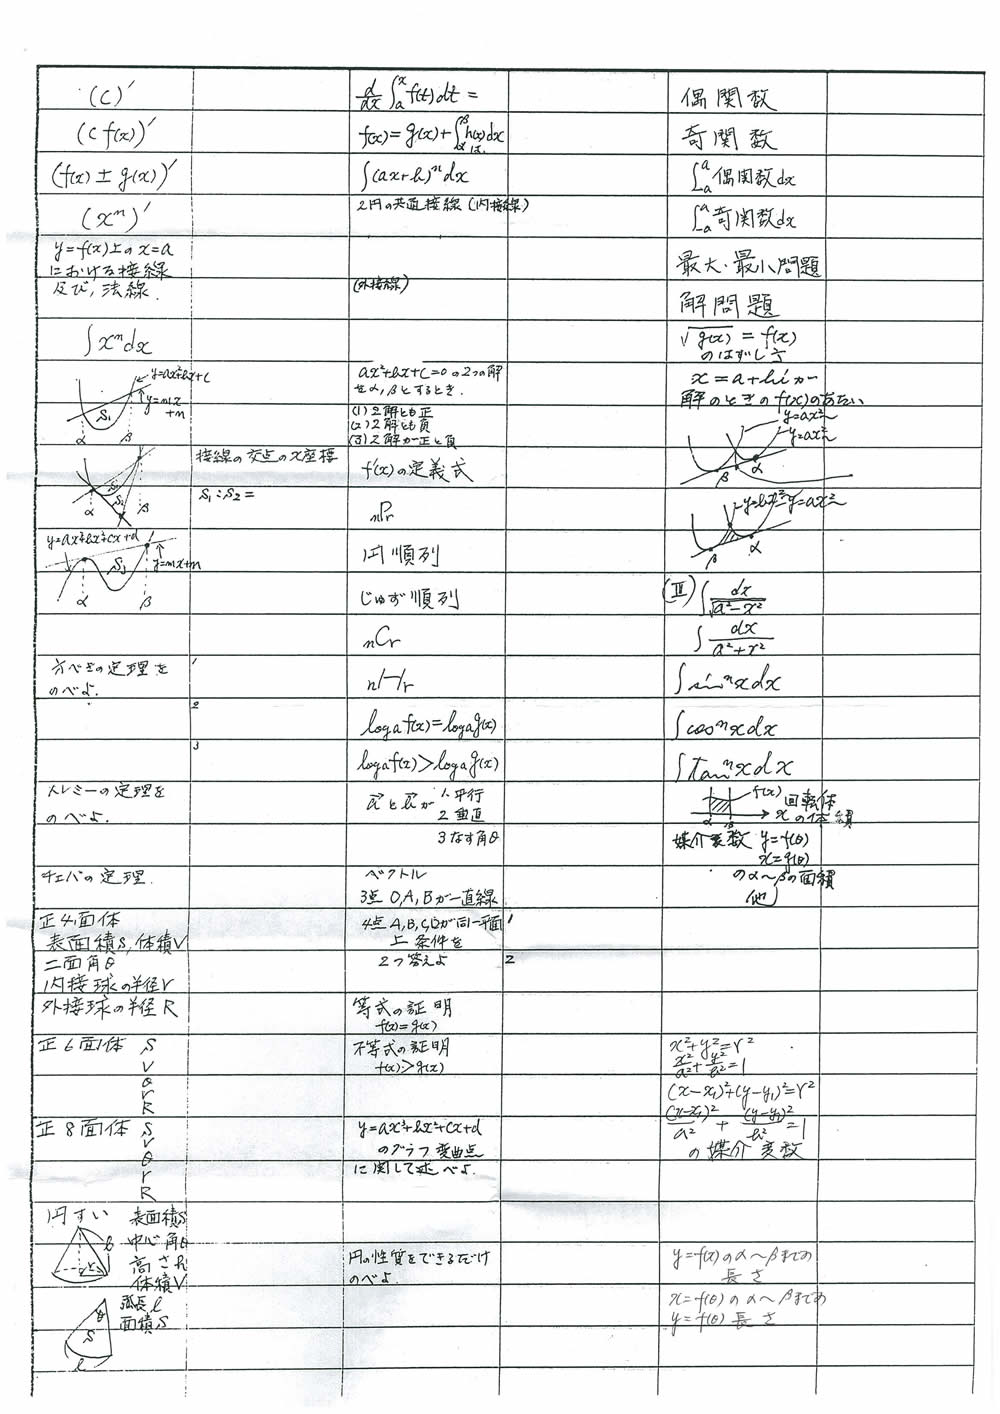 (C)'
(C f(x))'
(f(x) ± g(x))'
(xⁿ)'
y=f(x)上の x=a
における接線
及び,法線.
∫xⁿdx
y=ax²+bx+c
y=mx
+n
S₁
α
β
接線の交点のx座標
S₁:S₂=
α
β
y=ax³+bx²+cx+d
y=mx+n
S₃
α
β
方べきの定理を
のべよ.
1
2
3
トレミーの定理を
のべよ.
チェバの定理.
正4面体
表面積S,体積V
二面角θ
内接球の半径r
外接球の半径R
正6面体 S
V
θ
r
R
正8面体 S
V
θ
r
R
円すい 表面積S
中心角θ
高さh
体積V
l
r
弧長l
面積S
θ
S
l
d/dx ∫ₐˣ f(t)dt =
f(x)=g(x)+∫_α^β h(x)dx
は.
∫(ax+b)ⁿdx
2円の共通接線(内接線)
(外接線)
ax²+bx+c=0の2つの解
をα,βとするとき.
(1) 2解とも正
(2) 2解とも負
(3) 2解が正と負
f'(x)の定義式
nPr
円順列
じゅず順列
nCr
nHr
logₐf(x)=logₐg(x)
logₐf(x)>logₐg(x)
a⃗とb⃗が 1.平行
2 垂直
3 なす角θ
ベクトル
3点 O,A,Bが一直線
4点A,B,C,Dが同一平面
上 条件を
2つ答えよ
1
2
等式の証明
f(x)=g(x)
不等式の証明
f(x)>g(x)
y=ax³+bx²+cx+d
のグラフ 変曲点
に関して述べよ.
円の性質をできるだけ
のべよ
偶関数
奇関数
∫₋ₐᵃ 偶関数dx
∫₋ₐᵃ 奇関数dx
最大・最小問題
解問題
√g(x) = f(x)
のはずし方
x=a+biが
解のときのf(x)のあたい
y=ax²~
y=ax²~
β
α
y=bx²~
y=ax²~
β
α
(Ⅲ) ∫ dx/√(a²-x²)
∫ dx/(a²+x²)
∫sinⁿxdx
∫cosⁿxdx
∫tanⁿxdx
f(x)
回転体
xの体積
α
β
媒介変数 y=f(θ)
x=g(θ)
のα~βの面積
他
x²+y²=r²
x²/a²+y²/b²=1
(x-x₁)²+(y-y₁)²=r²
(x-x₁)²/a² + (y-y₁)²/b²=1
の媒介変数
y=f(x)のα~βまでの
長さ
x=f(θ)のα~βまでの
y=f(θ) 長さ